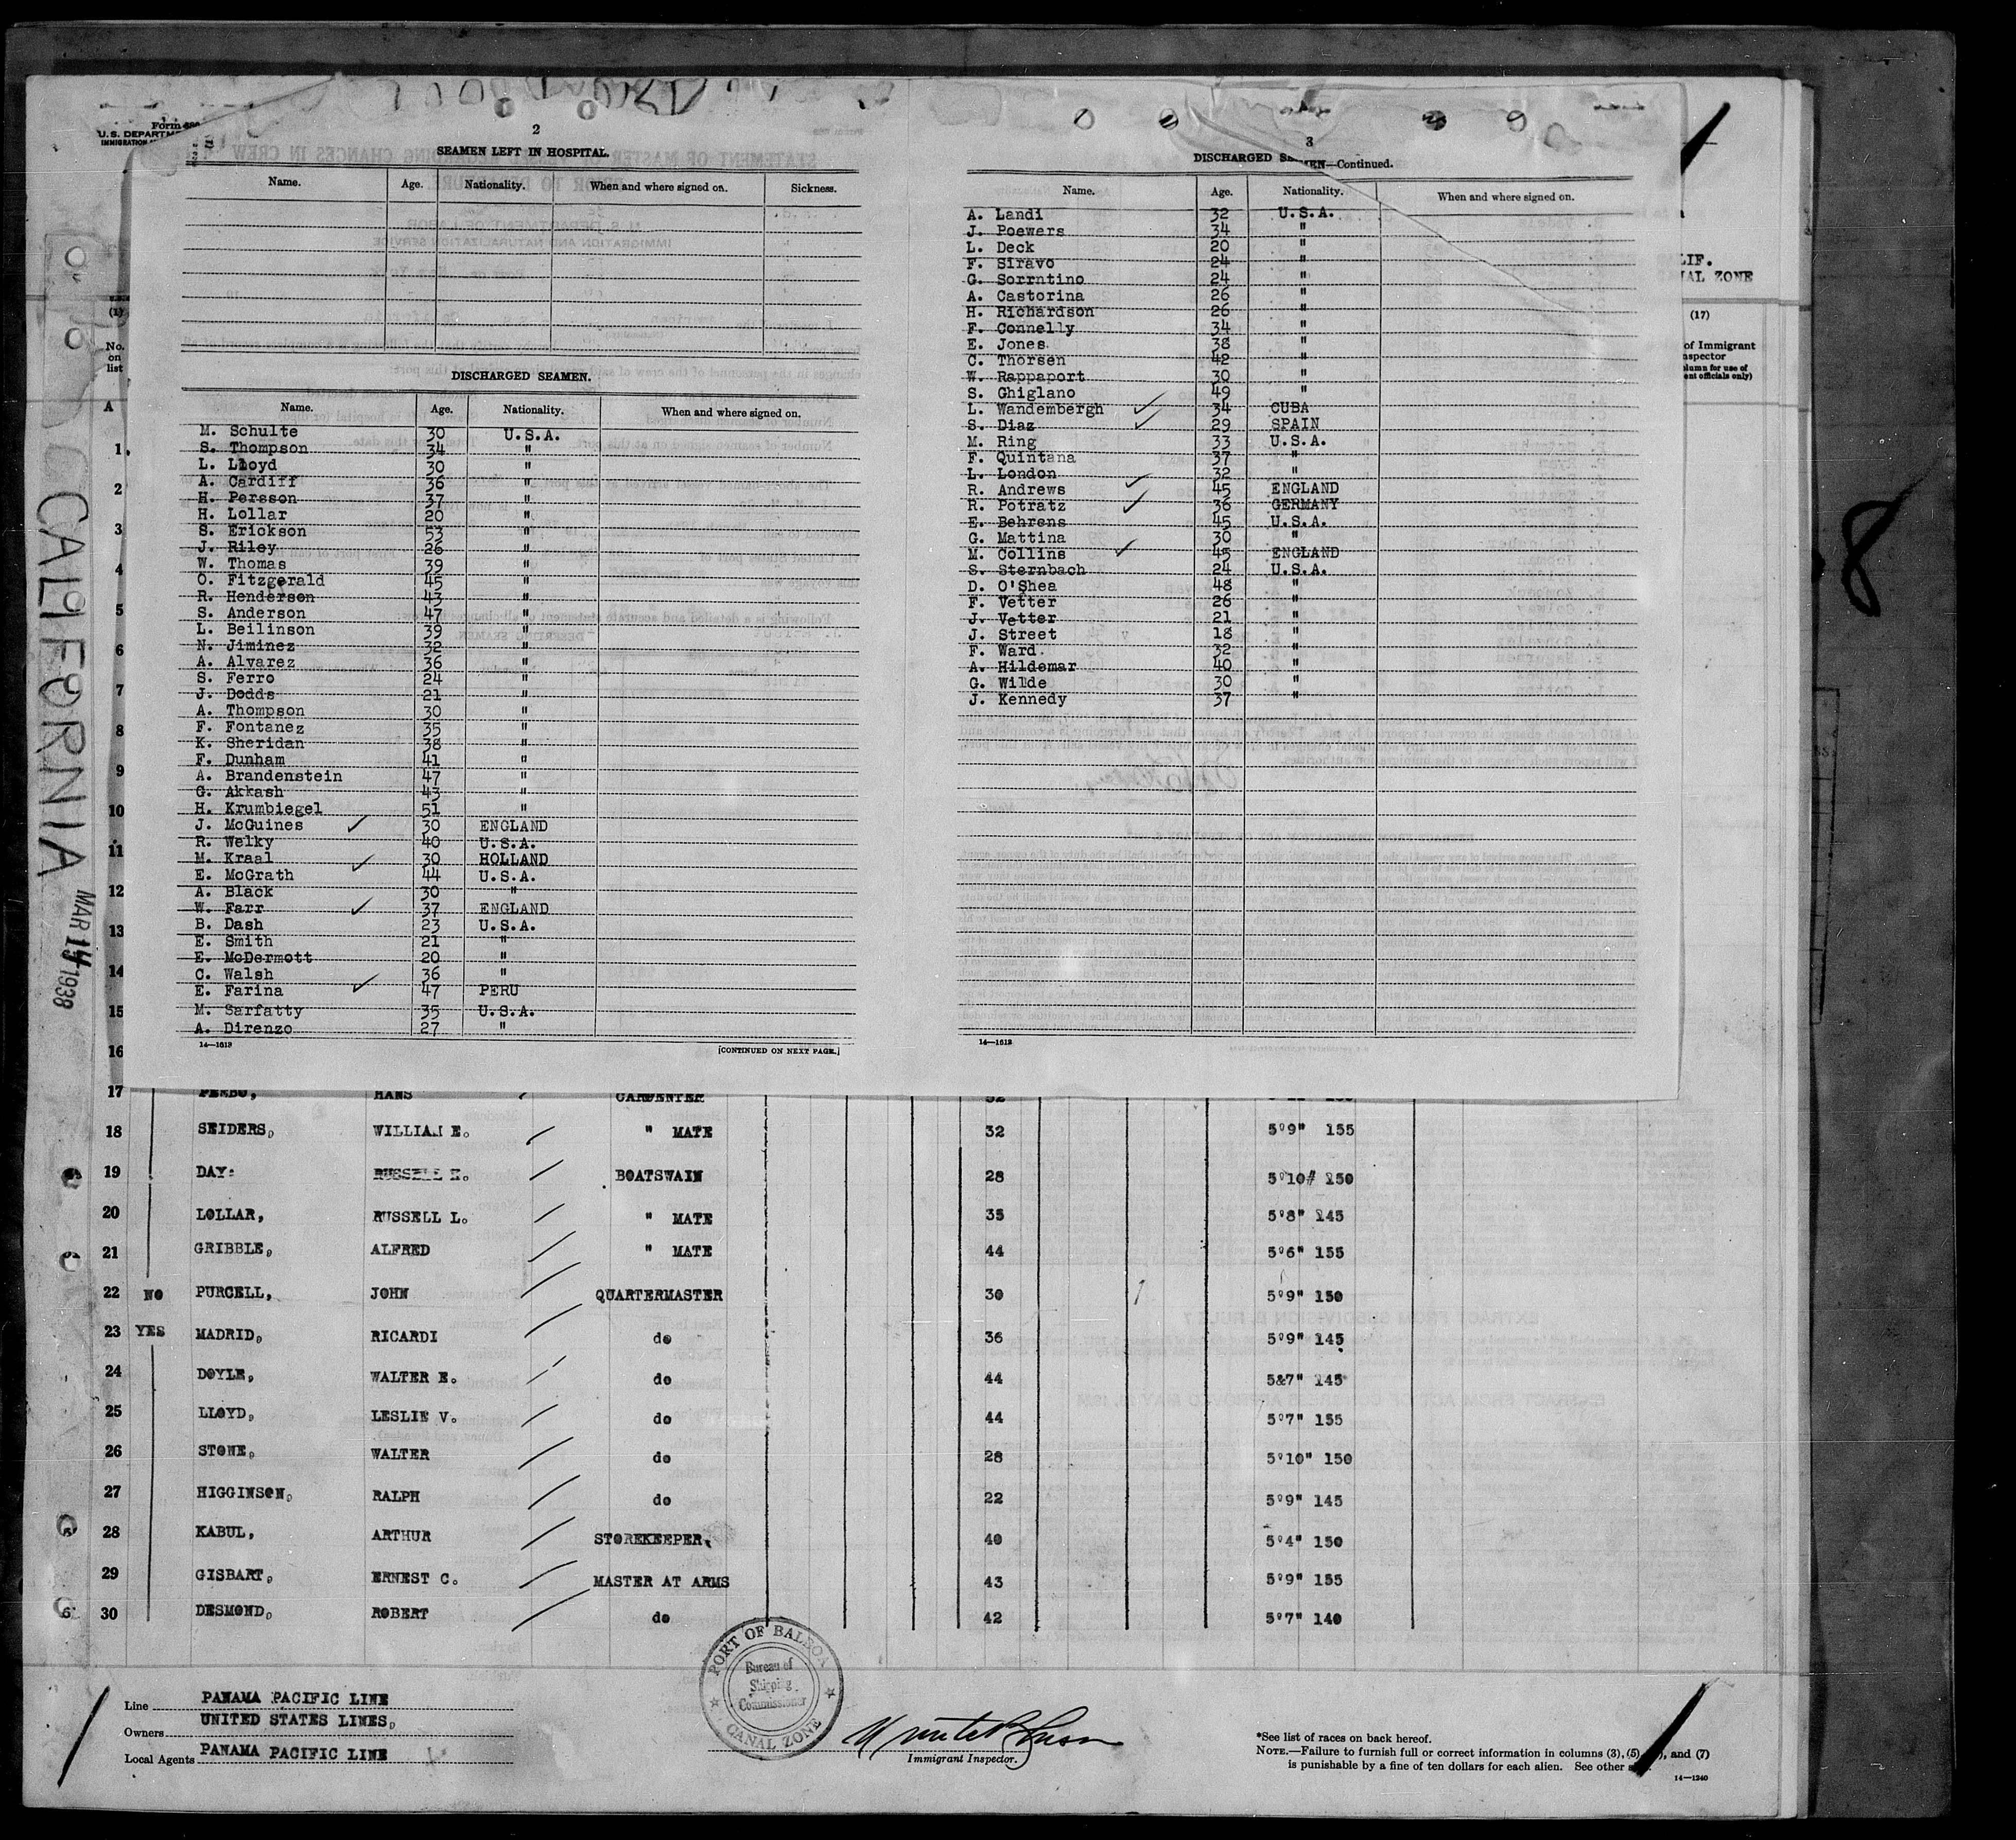 Form
U.S. DEPARTM
IMMIGRATION
2
SEAMEN LEFT IN HOSPITAL.
Name. Age. Nationality. When and where signed on. Sickness.
DISCHARGED SEAMEN.
Name. Age. Nationality. When and where signed on.
M. Schulte 30 U.S.A.
S. Thompson 34 "
L. Lloyd 30 "
A. Cardiff 36 "
H. Persson 37 "
H. Lollar 20 "
S. Erickson 53 "
J. Riley 26 "
W. Thomas 39 "
O. Fitzgerald 45 "
R. Henderson 43 "
S. Anderson 47 "
L. Beilinson 39 "
N. Jiminez 32 "
A. Alvarez 36 "
S. Ferro 24 "
J. Dodds 21 "
A. Thompson 30 "
F. Fontanez 35 "
K. Sheridan 38 "
F. Dunham 41 "
A. Brandenstein 47 "
G. Akkash 43 "
H. Krumbiegel 51 "
J. McGuines ✓ 30 ENGLAND
R. Welky 40 U.S.A.
M. Kraal ✓ 30 HOLLAND
E. McGrath 44 U.S.A.
A. Black 30 "
W. Farr ✓ 37 ENGLAND
B. Dash 23 U.S.A.
E. Smith 21 "
E. McDermott 20 "
C. Walsh 36 "
E. Farina ✓ 47 PERU
M. Sarfatty 35 U.S.A.
A. Direnzo 27 "
14—1613
[CONTINUED ON NEXT PAGE.]
3
DISCHARGED SEAMEN—Continued.
Name. Age. Nationality. When and where signed on.
A. Landi 32 U.S.A.
J. Poewers 34 "
L. Deck 20 "
F. Siravo 24 "
G. Sorrntino 24 "
A. Castorina 26 "
H. Richardson 26 "
F. Connelly 34 "
E. Jones 38 "
C. Thorsen 42 "
W. Rappaport 30 "
S. Ghiglano 49 "
L. Wandembergh ✓ 34 CUBA
S. Diaz ✓ 29 SPAIN
M. Ring 33 U.S.A.
F. Quintana 37 "
L. London 32 "
R. Andrews ✓ 45 ENGLAND
R. Potratz ✓ 36 GERMANY
E. Behrens 45 U.S.A.
G. Mattina 30 "
M. Collins ✓ 45 ENGLAND
S. Sternbach 24 U.S.A.
D. O'Shea 48 "
F. Vetter 26 "
J. Vetter 21 "
J. Street 18 "
F. Ward 32 "
A. Hildemar 40 "
G. Wilde 30 "
J. Kennedy 37 "
14—1613
LIF.
NAL ZONE
(17)
of Immigrant
nspector
olumn for use of
ent officials only)
(1)
No.
on
list
A
1
2
3
4
5
6
7
8
9
10
11
12
13
14
15
16
CALIFORNIA
MAR 14 1938
8
17 HANS CARPENTER
18 SEIDERS, WILLIAM E. " MATE 32 5'9" 155
19 DAY: RUSSELL BOATSWAIN 28 5'10# 150
20 LOLLAR, RUSSELL L. " MATE 35 5'8" 145
21 GRIBBLE, ALFRED " MATE 44 5'6" 155
22 NO PURCELL, JOHN QUARTERMASTER 30 5'9" 150
23 YES MADRID, RICARDI do 36 5'9" 145
24 DOYLE, WALTER E. do 44 5&7" 145
25 LLOYD, LESLIE V. do 44 5'7" 155
26 STONE, WALTER do 28 5'10" 150
27 HIGGINSON, RALPH do 22 5'9" 145
28 KABUL, ARTHUR STOREKEEPER, 40 5'4" 150
29 GISBART, ERNEST C. MASTER AT ARMS 43 5'9" 155
30 DESMOND, ROBERT do 42 5'7" 140
PORT OF BALBOA
Bureau of
Shipping
Commissioner
CANAL ZONE
Line PANAMA PACIFIC LINE
Owners UNITED STATES LINES,
Local Agents PANAMA PACIFIC LINE
Immigrant Inspector.
*See list of races on back hereof.
NOTE.—Failure to furnish full or correct information in columns (3), (5), and (7)
is punishable by a fine of ten dollars for each alien. See other
14—1240